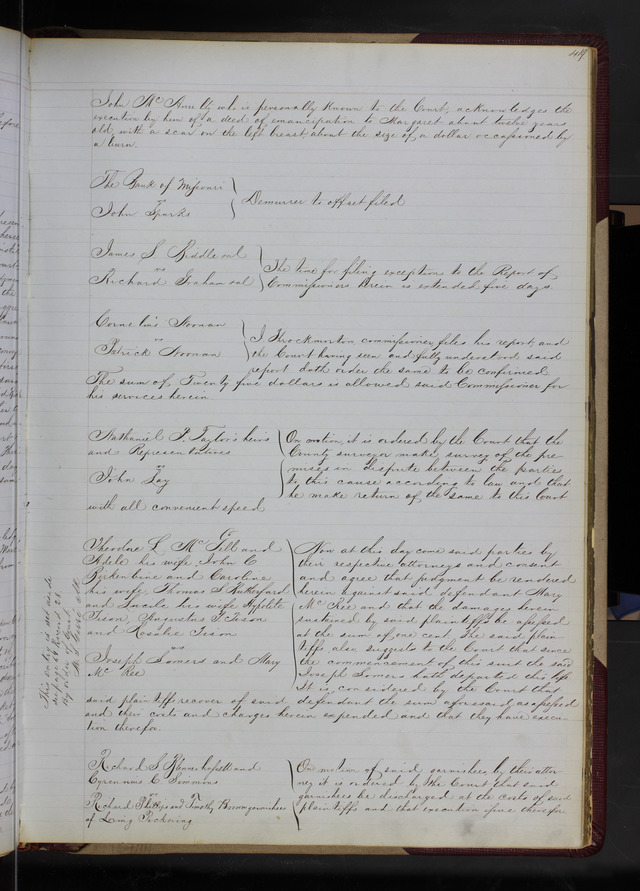 John Mc Anulty who is personally known to the Court, acknowledges the
execution by him of a deed of emancipation to Margaret about twelve years
old, with a scar on the left breast, about the size of a dollar occasioned by
a burn.
The Bank of Missouri
vs
John Sparks
Demurrer to offset filed
James S. Biddle et al
vs
Richard Graham et al
The time for filing exceptions to the Report of
Commissioners herein is extended five days
Cornelius Noonan
vs
Patrick Noonan
J Throckmorton, commissioner files his report, and
the Court having seen and fully understood said
report doth order the same to be confirmed
The sum of Twenty five dollars is allowed said Commissioner for
his services herein.
Nathaniel P. Taylor's heirs
and Representatives
vs
John Fay
On motion, it is ordered by the Court that the
County surveyor make survey of the pre-
mises in dispute between the parties
to this cause according to law and that
he make return of the same to this Court
with all convenient speed
Theodore L. McGill and
Adele his wife, John C
Berkenbine and Caroline
his wife, Thomas S Rutherford
and Lucile his wife Hypolite
Tison, Augustus F. Tison
and Rosalie Tison
vs
Joseph Somers and Mary
Mc Ree
Now at this day come said parties by
their respective attorneys and consent
and agree that judgment be rendered
herein against said defendant Mary
Mc Ree and that the damages herein
sustained by said plaintiffs be assessed
at the sum of one cent, The said plain-
tiffs also suggests to the Court that since
the commencement of this suit the said
Joseph Somers hath departed this life
It is considered by the Court that
said plaintiffs recover of said defendant the sum aforesaid assessed
and their costs and charges herein expended and that they have execu-
tion therefor.
This entry is set aside
Richard S. and
Cyrenius C. Simmons
vs
Richard Phillips and Timothy garnishees
of Loring Pickering
On motion of said garnishees by their attor-
ney it is ordered by the Court that said
garnishees be discharged at the costs of said
plaintiffs and that execution issue therefor.